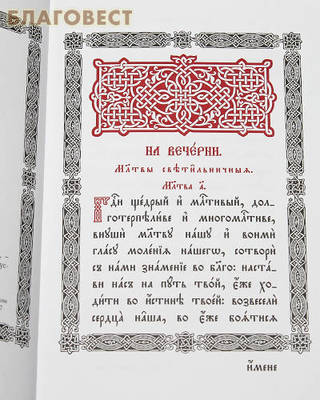 БЛАГОВЕСТ
НА ВЕЧЕ́РНИ.
Мл҃твы свѣти́льничныѧ.
Мл҃тва а҃.
Гдⷭ҇и ще́дрый и҆ млⷭ҇тивый, дол-
готерпѣли́ве и҆ многомлⷭ҇тиве,
внꙋшѝ мл҃твꙋ на́шꙋ и҆ вонмѝ
гла́сꙋ моле́нїѧ на́шегѡ, сотворѝ
съ на́ми зна́менїе во бла́го: наста́-
ви на́съ на пꙋ́ть тво́й, є҆́же хо-
ди́ти во и҆́стинѣ твое́й: возвеселѝ
сердца̀ на̑ша, во є҆́же боѧ́тисѧ
и҆́мене